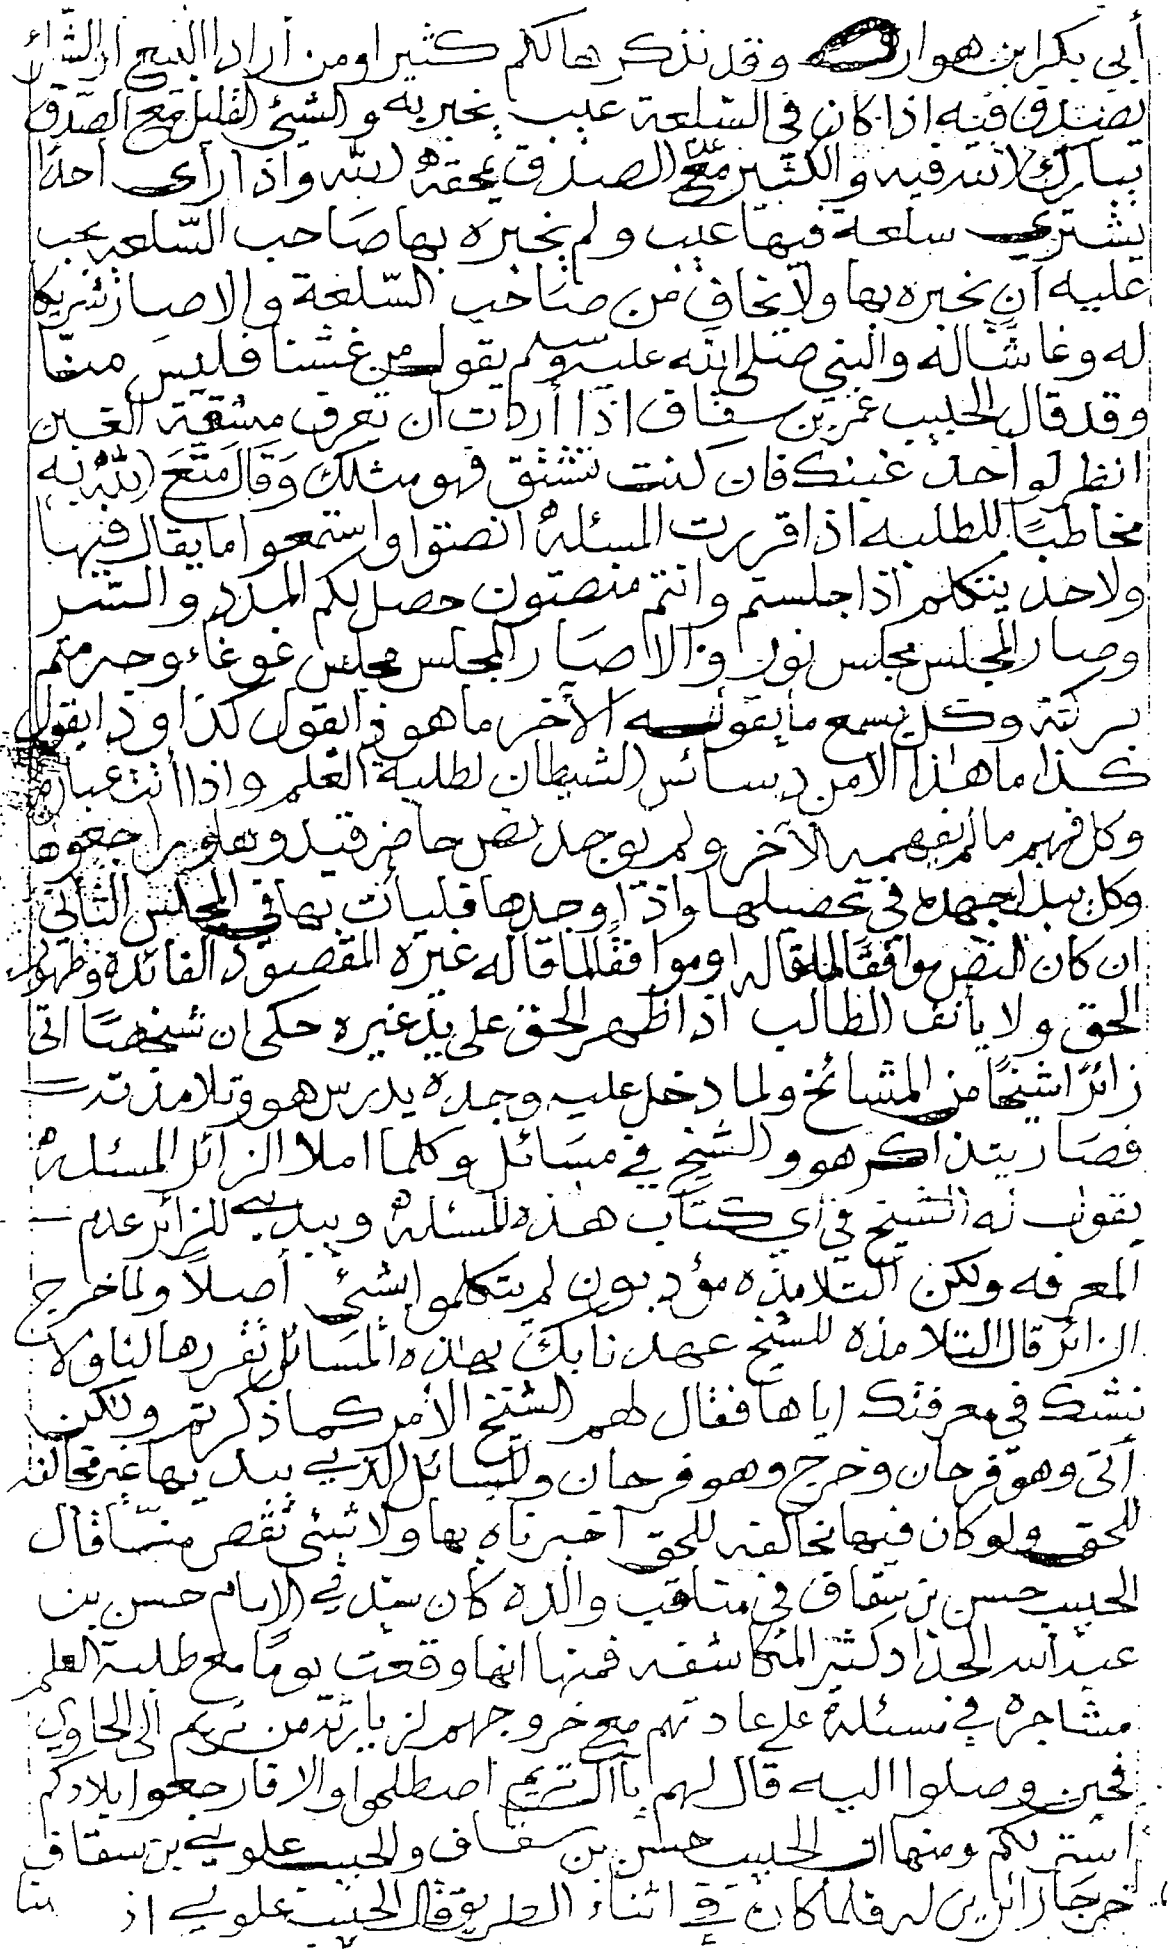 أبي بكر ابن هوار وقد نذكرها لكم كثيرا ومن أراد البيع أو الشراء
يصدق فيه اذا كان في السّلعة عيب يخبر به والشئ القليل مع الصدق
يبارك الله فيه والكثير مع عدم الصدق يمحقه الله واذا رأى أحدًا
يشتري سلعة فيها عيب ولم يخبره بها صاحب السّلعه يجب
عليه أن يخبره بها ولا يخاف من صاحب السّلعة والا صار شريكا
له وغاشًّا له والنبي صلى الله عليه وسلم يقول من غشنا فليس منّا
وقد قال الحبيب عمر بن سقاف اذا أردت أن تعرف مشقة الغبن
انظر لو أحد غبنك فان كنت تشتق فهو مثلك وقال متّع الله به
مخاطبًا للطلبه اذا قررت المسئلة انصتوا واستمعوا ما يقال فيها
ولاحد يتكلم اذا جلستم وانتم منصتون حصل لكم المدد والسّر
وصار المجلس مجلس نور والا صار المجلس مجلس غوغاء وحرمتم
بركته وكل يسمع ما يقوله الآخر ما هو ذا يقول كذا وذا يقول
كذا ما هذا الا من دسائس الشيطان لطلبة العلم واذا أتت عباره
وكل فهم ما لم يفهمه الآخر ولم يوجد نص حاضر قيدوها وراجعوها
وكل يبذل جهده في تحصيلها واذا وجدها فليأت بها في المجلس الثاني
ان كان النص موافقًا لما قاله او موافقًا لما قاله غيره المقصود الفائدة وظهور
الحق ولا يأنف الطالب اذا ظهر الحق على يد غيره حكي ان شخصًا اتى
زائرًا شيخًا من المشائخ ولما دخل عليه وجده يدرس هو وتلامذته
فصار يتذاكر هو والشيخ في مسائل وكلما املا الزائر المسئلة
يقول له الشيخ في أي كتاب هذه المسئلة ويبدي للزائر عدم
المعرفه ولكن التلامذه مؤدبون لم يتكلموا بشئ أصلاً ولما خرج
الزائر قال التلامذه للشيخ عهدنا بك بهذه المسائل تقررها لنا ولا
نشك في معرفتك اياها فقال لهم الشيخ الأمر كما ذكرتم ولكن
أتى وهو فرحان وخرج وهو فرحان والمسائل الذي يبديها غير مخالفه
للحق ولو كان فيها مخالفه للحق اخبرناه بها ولا شئ نقص منّا قال
الحبيب حسن بن سقاف في مناقب والده كان سيدي الامام حسن بن
عبدالله الحداد كثير المكاشفه فمنها انها وقعت يومًا مع طلبة العلم
مشاجره في مسئلة على عادتهم مع خروجهم لزيارته من تريم الى الحاوي
فحين وصلوا اليه قال لهم يا آل تريم اصطلحوا والا فارجعوا بلادكم
استر لكم ومنها ان الحبيب حسن بن سقاف والحبيب علوي بن سقاف
خرجا زائرين له فلما كان في اثناء الطريق قال الحبيب علوي اذ